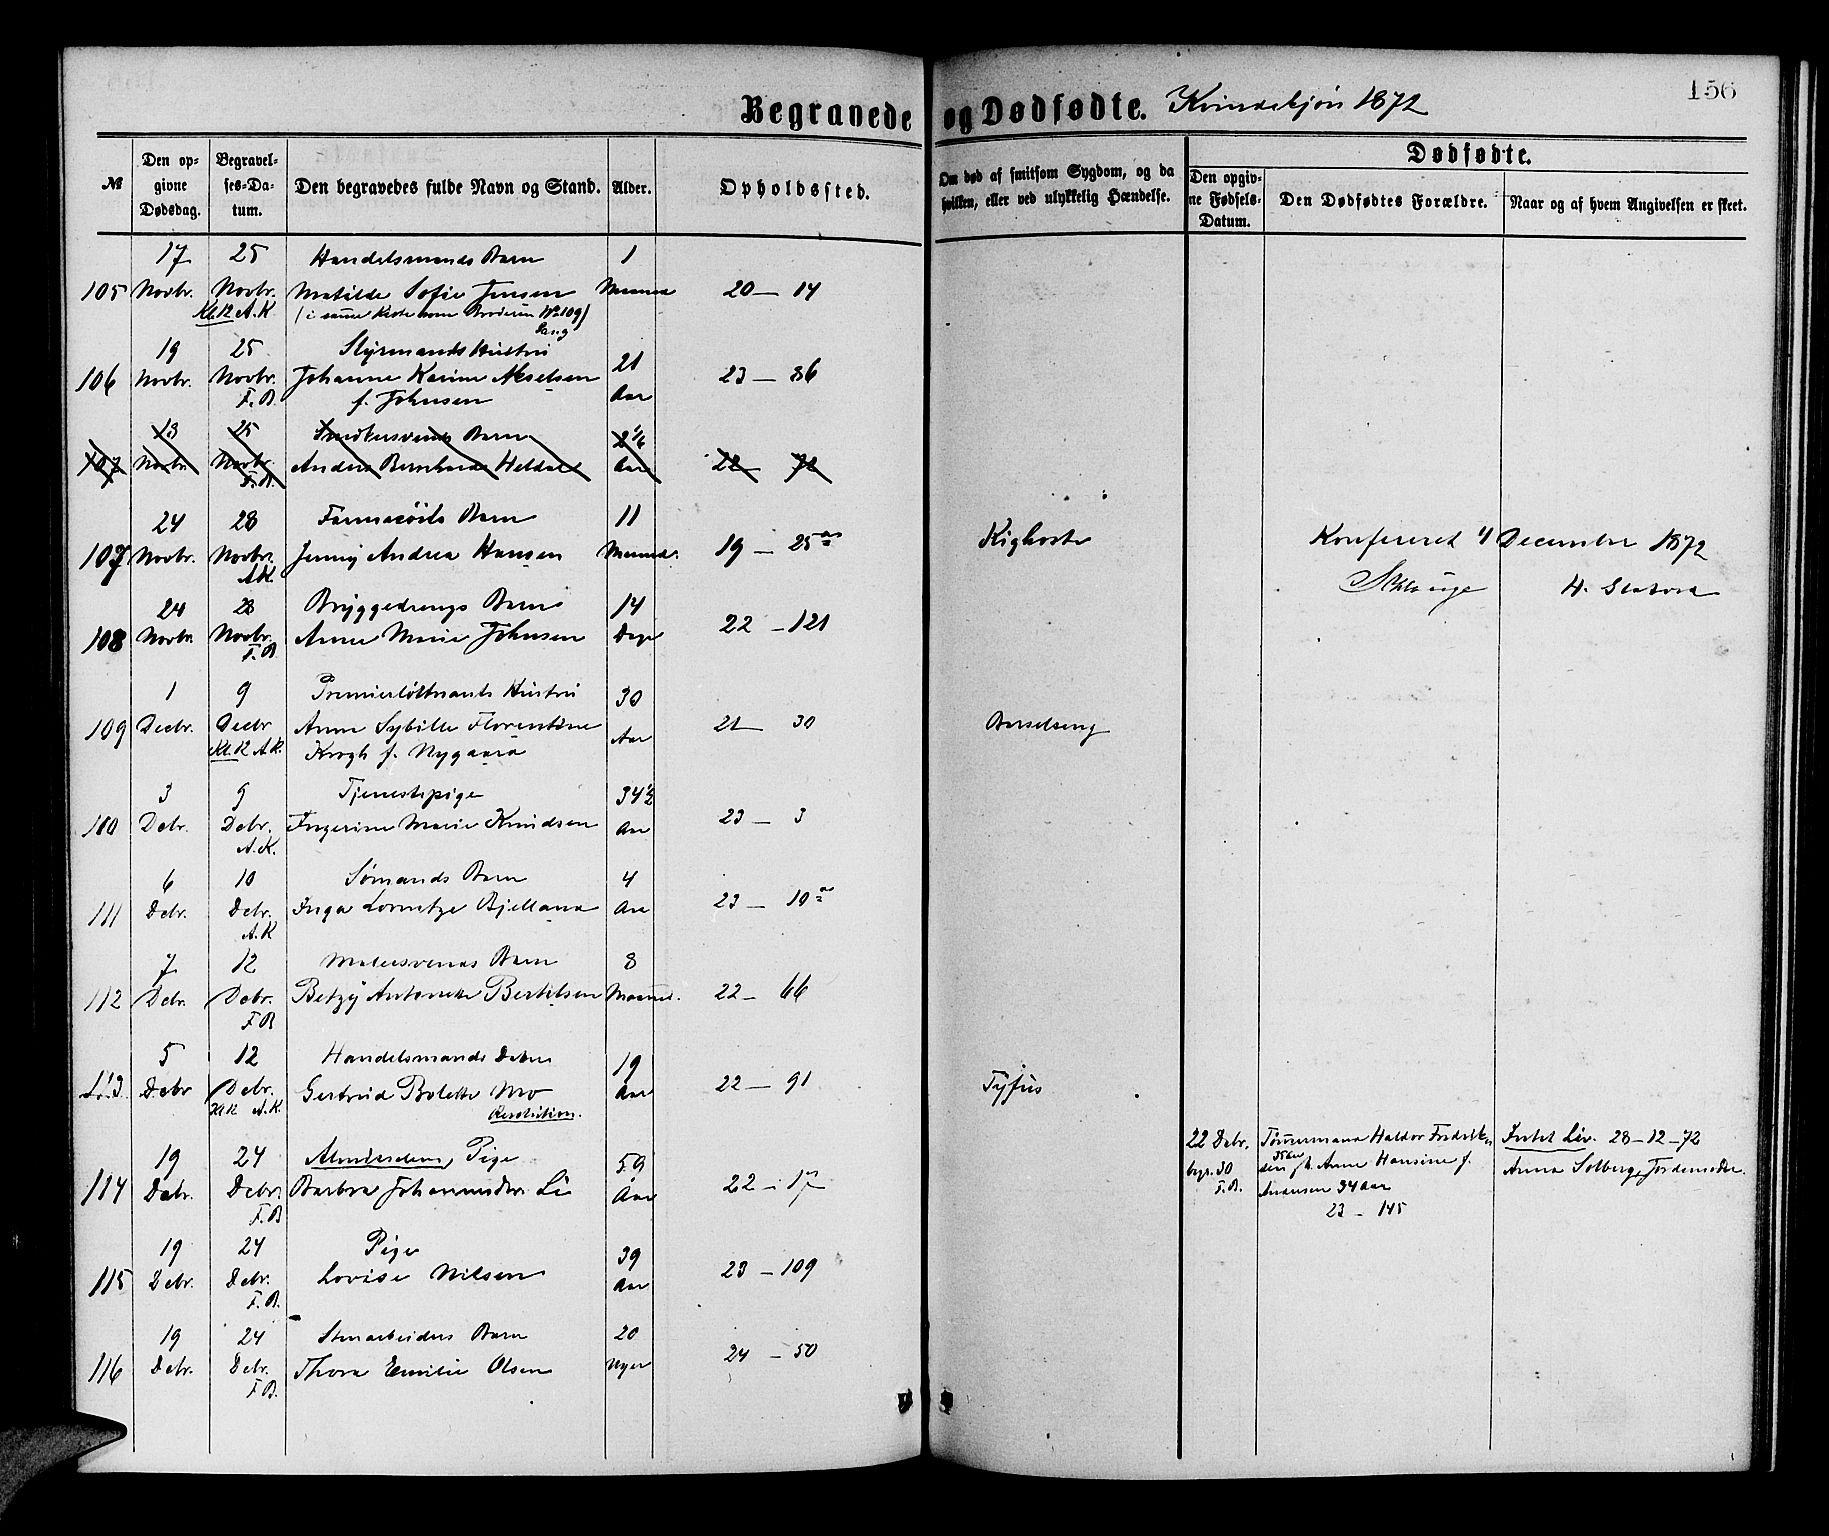 156
Begravede og Dødfødte. Kvindekjøn 1872
№
Den opgivne Dødsdag.
Begravelses-Datum.
Den begravedes fulde Navn og Stand.
Alder.
Opholdssted.
Om død af smitsom Sygdom, og da hvilken, eller ved ulykkelig Hændelse.
Dødfødte.
Den opgivne Fødsels-Datum.
Den Dødfødtes Forældre.
Naar og af hvem Angivelsen er skeet.
17 25 Handelsmands Barn 1
105 Novbr. Novbr. Matilde Sofie Jensen Maaned 20 — 14
Kl. 12 A.K. (i samme Kiste som Broderen No 109)
19 25 Styrmands Hustru 21
106 Novbr. Novbr. Johanne Karine Akselsen Aar 23 — 36
F.B. f. Johnsen
13 25 Snedkersvends Barn 2 1/6
107 Novbr. Novbr. Anders Bernhards Heldal Aar 22 72
F.B.
24 28 Barn 11
107 Novbr. Novbr. Jenny Andrea Hansen Maaned. 19 — 25 Kighoste
A.K.
Konfereret 4 December 1872
24 28 Bryggedrengs Barn 14
108 Novbr. Novbr. Anne Marie Johnsen Dage 22 — 121
F.B.
1 9 Premierløitnants Hustru 30
109 Decbr. Decbr Anne Sybille Florentine Aar 21 30 Barselseng
Kl. 12 A.K. Krogh f. Nygaard
3 9 Tjenestepige 34 1/2
110 Debr. Debr. Ingerine Marie Knudsen Aar 23 — 3
A.K.
6 10 Sømands Barn 4
111 Debr. Debr. Inga Lornetze Bjelland Aar 23 — 19
A.K
7 12 Malersvends Barn 8
112 Debr. Debr. Betzy Antonette Bertelsen Maaned. 22 — 66
F.B
5 12 Handelsmands Datter 19
113 Debr Debr. Gertrud Bolette Mo Aar 22 — 91 Tyfus
Kl. 12 A.K.
19 24 Almisselem, Pige 59
114 Debr. Debr. Barbra Johannesdtr. Li Aar 22 — 17
F.B
22 Debr. Tømmermand Haldor Fredriksen
35 Aar
begr. 30 Anne Hansine f.
F.B. Andersen 34 Aar
23 — 145
Intet Liv. 28-12-72
Anna Solberg, Jordemoder.
19 24 Pige 39
115 Debr. Debr. Lovise Nilsen Aar 23 — 109
F.B.
19 24 Stenarbeiders Barn 20
116 Debr. Debr. Thora Emilie Olsen Uger 24 — 50
F.B.